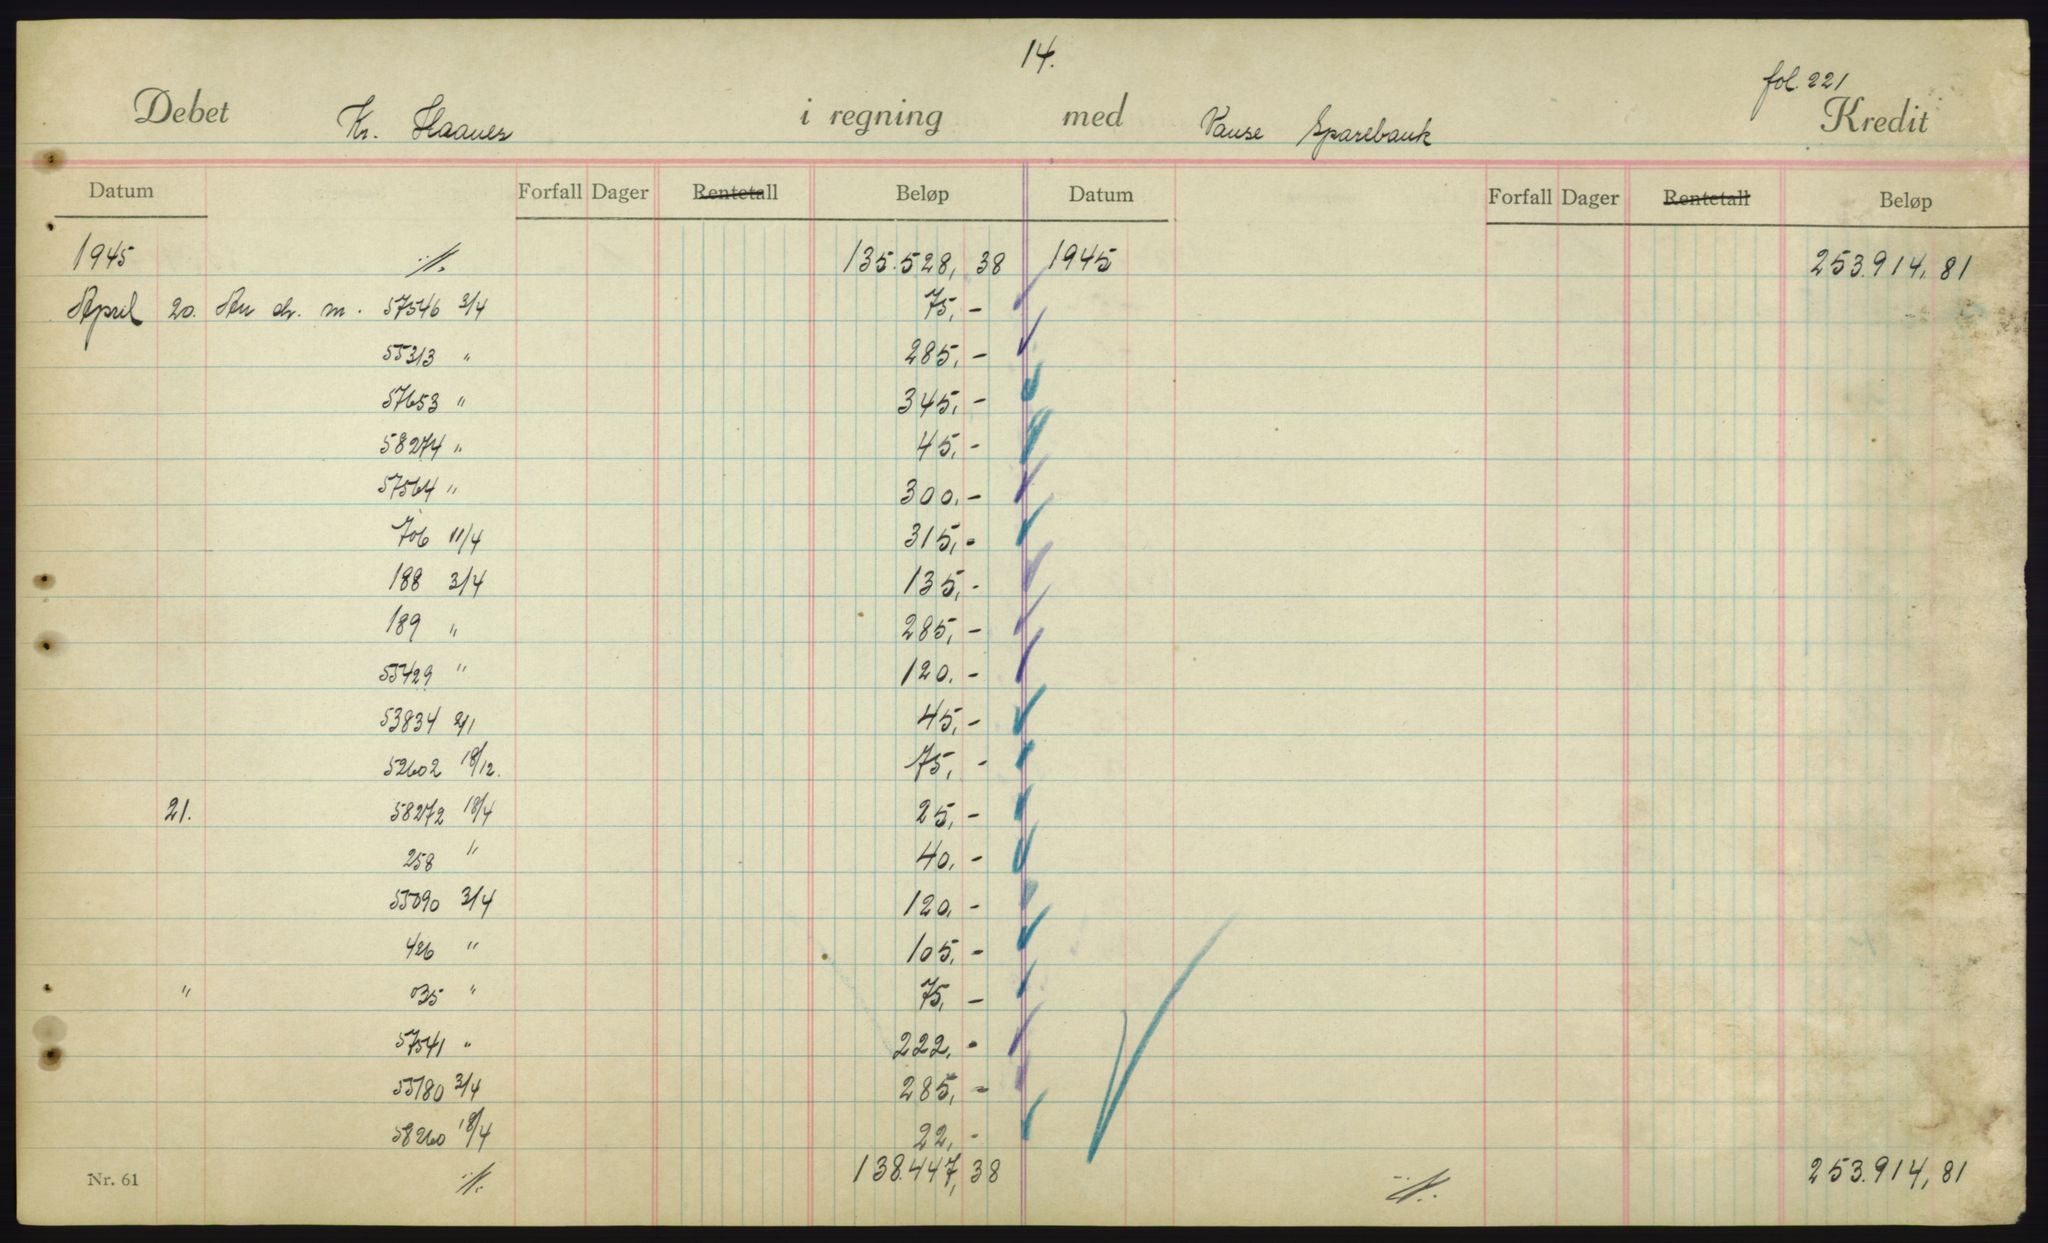 14.
fol. 221
Debet Kr. Haanes i regning med Vanse Sparebank Kredit
Datum Forfall Dager Rentetall Beløp Datum Forfall Dager Rentetall Beløp
1945 135.528,38 1945 253.914,81
April 20. An ch. m. 57546 3/4 75,-
55313 " 285,-
57653 " 345,-
58274 " 45,-
57564 " 300,-
706 11/4 315,-
188 3/4 135,-
189 " 285,-
55429 " 120,-
53834 2/1 45,-
52602 18/12. 75,-
21. 58272 18/4 25,-
258 " 40,-
55090 3/4 120,-
426 " 105,-
" 035 " 75,-
57541 " 222,-
55180 3/4 285,-
58260 18/4 22,-
Nr. 61 138.447,38 253.914,81